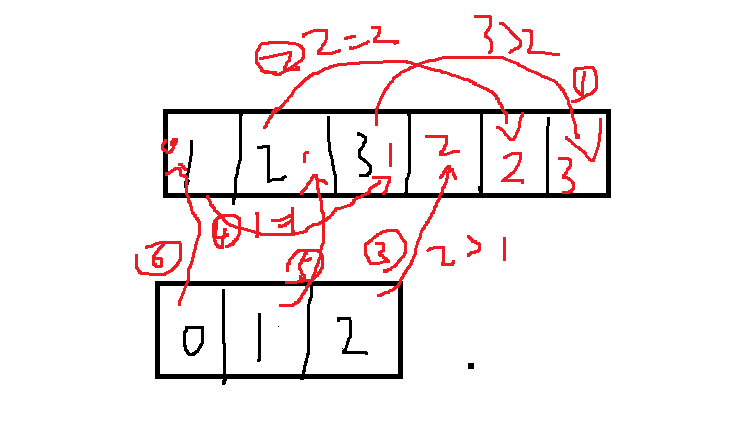 ② 2=2 3>2 ①
0 1 2 1 3 1 2 2 3
④ 1=1
⑥ ⑤ ③ 2>1
0 1 2